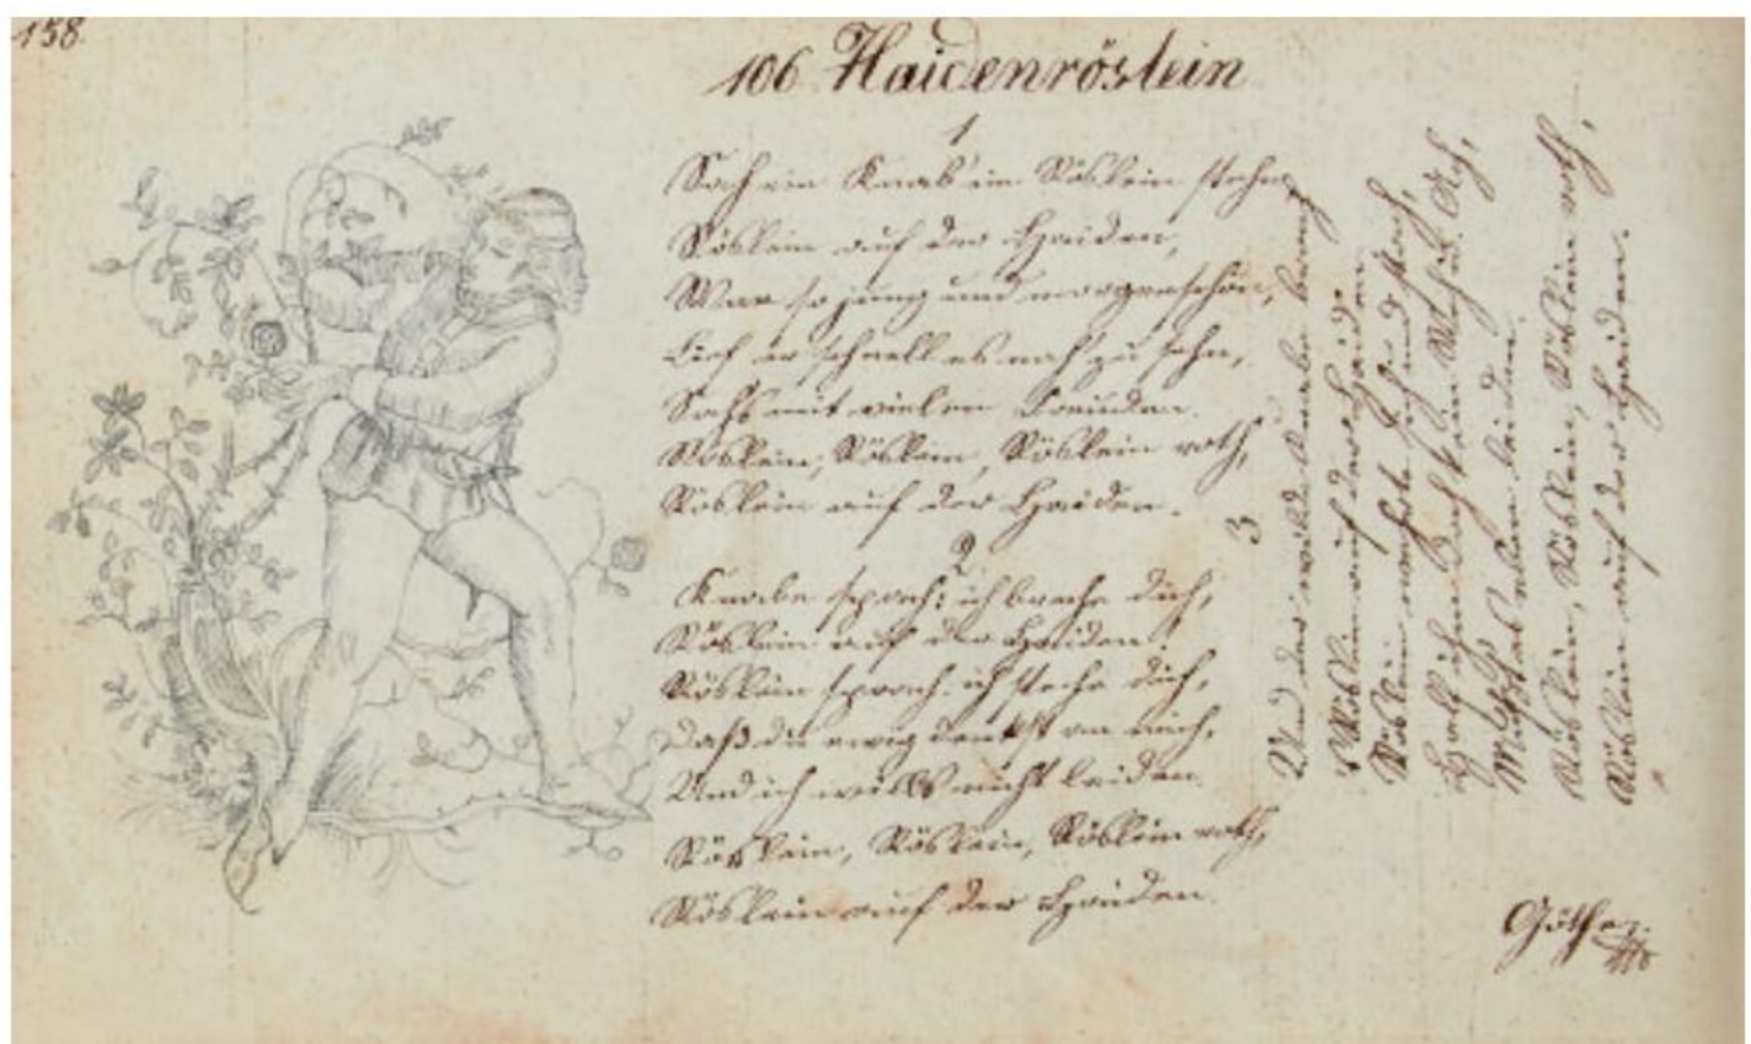 158.
106 Haidenröslein
1
Sah ein Knab' ein Röslein stehn,
Röslein auf der Haiden,
War so jung und morgenschön,
Lief er schnell es nah zu sehn,
Sah's mit vielen Freuden.
Röslein, Röslein, Röslein roth,
Röslein auf der Haiden.
2
Knabe sprach: ich breche dich,
Röslein auf der Haiden!
Röslein sprach: ich steche dich,
Daß du ewig denkst an mich,
Und ich will's nicht leiden.
Röslein, Röslein, Röslein roth,
Röslein auf der Haiden.
3
Und der wilde Knabe brach
's Röslein auf der Haiden
Röslein wehrte sich und stach,
Half ihm doch kein Weh u. Ach,
Mußt es eben leiden.
Röslein, Röslein, Röslein roth,
Röslein auf der Haiden.
Göthe.